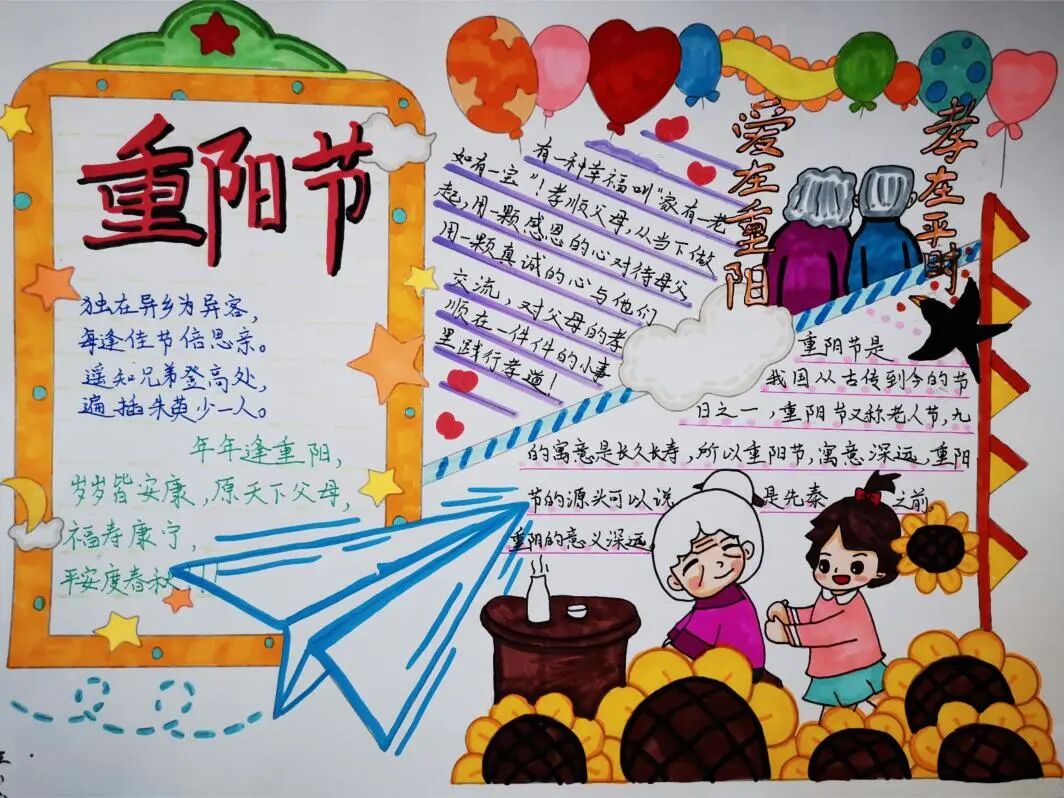 重阳节
独在异乡为异客，
每逢佳节倍思亲。
遥知兄弟登高处，
遍插朱萸少一人。
年年逢重阳，
岁岁皆安康，原天下父母，
福寿康宁，
平安度春秋！！！
有一种幸福叫"家有一老
如有一宝"！孝顺父母，从当下做
起，用一颗感恩的心对待母父
用一颗真诚的心与他们
交流，对父母的孝
顺在一件件的小事
里践行孝道！
爱在重阳
孝在平时
重阳节是
我国从古传到今的节
日之一，重阳节又称老人节，九
的寓意是长久长寿，所以重阳节，寓意深远，重阳
节的源头可以说 是先秦 之前，
重阳的意义深远。